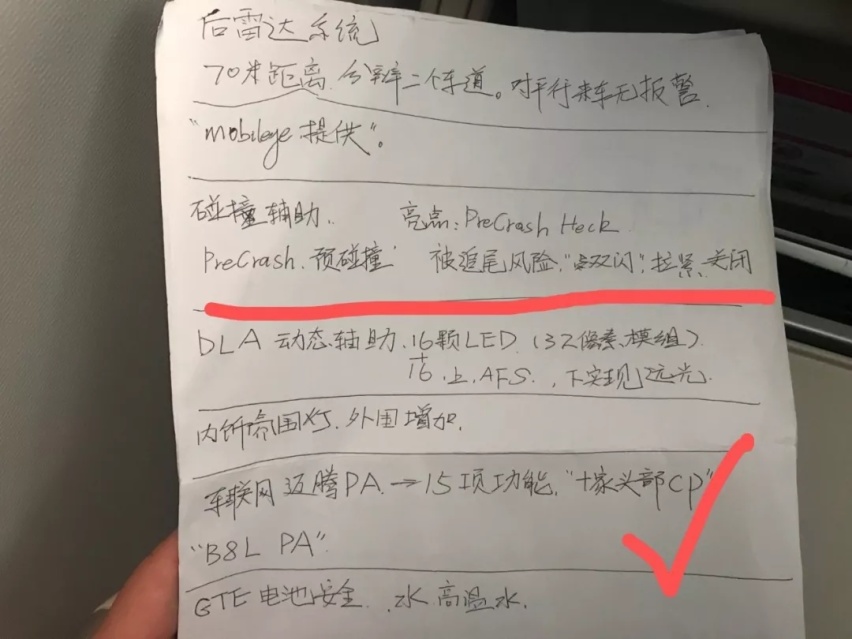 后雷达系统
70米距离.分辨二个车道。对平行来车无报警.
"mobileye 提供"。
碰撞辅助.. 亮点:PreCrash Heck.
PreCrash.预碰撞 被追尾风险."点双闪".拉紧、关闭
DLA 动态辅助.16颗LED.(32像素、模组).
16.上.AFS. .下实现远光.
内饰氛围灯.外围增加.
车联网 迈腾PA.→15项功能."十家头部CP"
"B8L PA"
GTE 电池安全. .水 高温水.